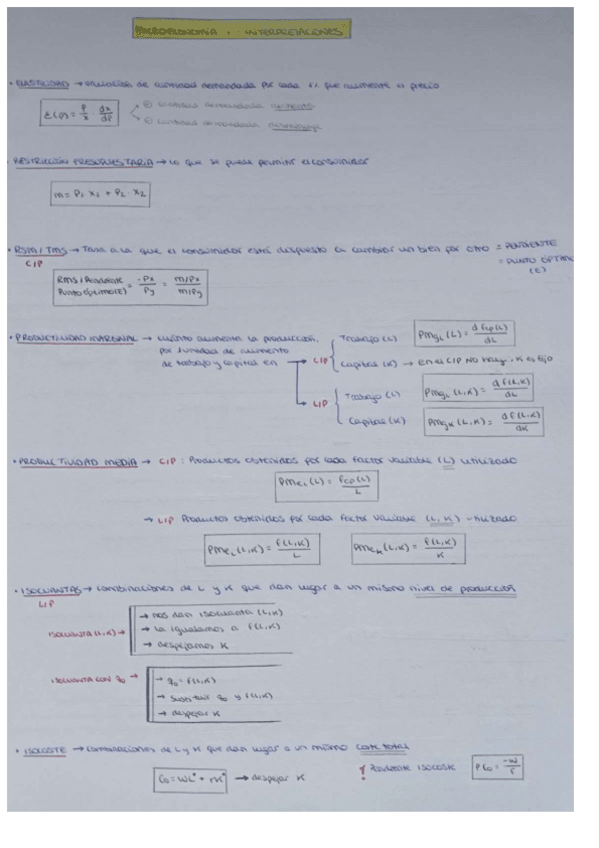 MICROECONOMÍA · INTERPRETACIONES
· ELASTICIDAD → variación de cantidad demandada por cada 1% que aumente el precio
E(P) = P/x · dx/dP
⊕ cantidad demandada aumenta
⊖ cantidad demandada disminuye
· RESTRICCIÓN PRESUPUESTARIA → lo que se puede permitir el consumidor
m = P1 x1 + P2 · x2
· RSM / TMS → Tasa a la que el consumidor está dispuesto a cambiar un bien por otro = PENDIENTE
= PUNTO ÓPTIMO
(E)
CIP
RMS / Pendiente
Punto óptimo (E) = -Px/Py = m/Px / m/Py
· PRODUCTIVIDAD MARGINAL → cuánto aumenta la producción,
por 1 unidad de aumento
de trabajo y capital en
→ CIP
Trabajo (L)
PmgL (L) = d fcp(L)/dL
Capital (K) → en el CIP NO hay, K es fijo
→ LIP
Trabajo (L)
PmgL (L,K) = d f(L,K)/dL
Capital (K)
PmgK (L,K) = d f(L,K)/dK
· PRODUCTIVIDAD MEDIA → CIP : Productos obtenidos por cada factor variable (L) utilizado
PmeL (L) = fcp(L)/L
→ LIP Productos obtenidos por cada factor variable (L,K) utilizado
PmeL (L,K) = f(L,K)/L
PmeK (L,K) = f(L,K)/K
· ISOCUANTAS → combinaciones de L y K que dan lugar a un mismo nivel de producción
LIP
ISOCUANTA (L,K) →
→ nos dan isocuanta (L,K)
→ la igualamos a f(L,K)
→ despejamos K
ISOCUANTA CON q0 →
→ q0 = f(L,K)
→ sustituir q0 y f(L,K)
→ despejar K
· ISOCOSTE → combinaciones de L y K que dan lugar a un mismo coste total
C0 = wL + rK → despejar K
! Pendiente ISOCOSTE
PC0 = -w/r